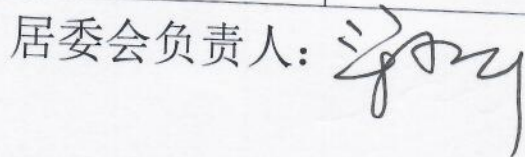 居委会负责人：